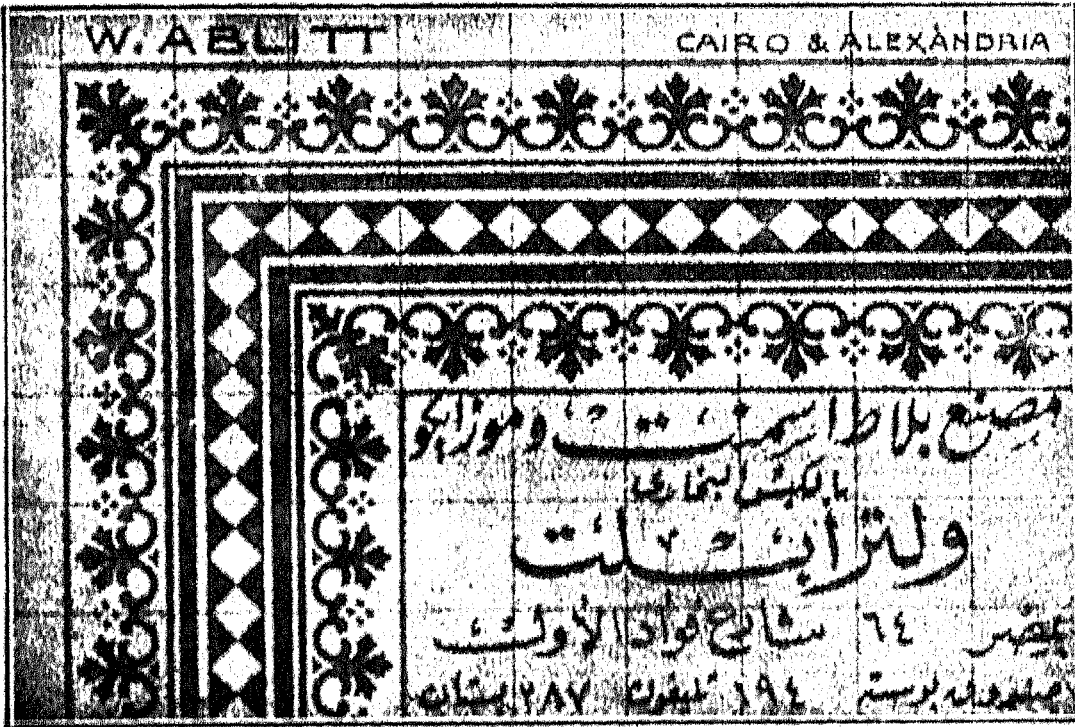 W. ABLITT
CAIRO & ALEXANDRIA
مصنع بلاط اسمنت وموزايكو
بالكبس البخارى
ولتر ابلت
بمصر ٦٤ شارع فواد الأول
صندوق بوستة ١٩٤ تليفون ٢٨٧ بستان